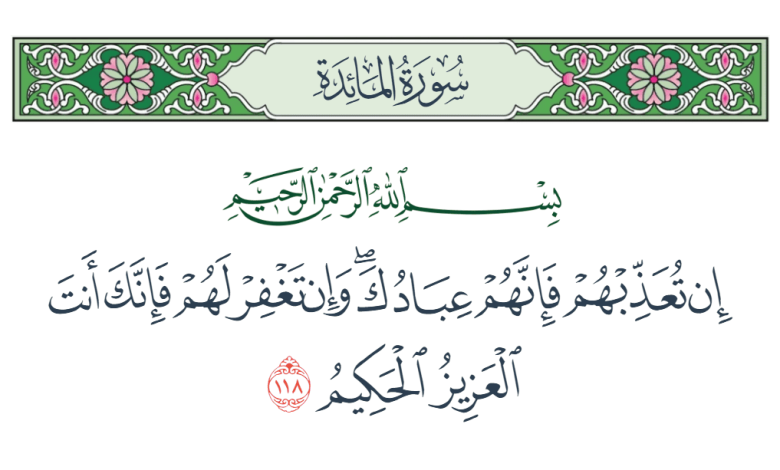 سُورَةُ المَائِدَةِ
بِسْمِ ٱللَّهِ ٱلرَّحْمَٰنِ ٱلرَّحِيمِ
إِن تُعَذِّبْهُمْ فَإِنَّهُمْ عِبَادُكَ ۖ وَإِن تَغْفِرْ لَهُمْ فَإِنَّكَ أَنتَ
ٱلْعَزِيزُ ٱلْحَكِيمُ ١١٨